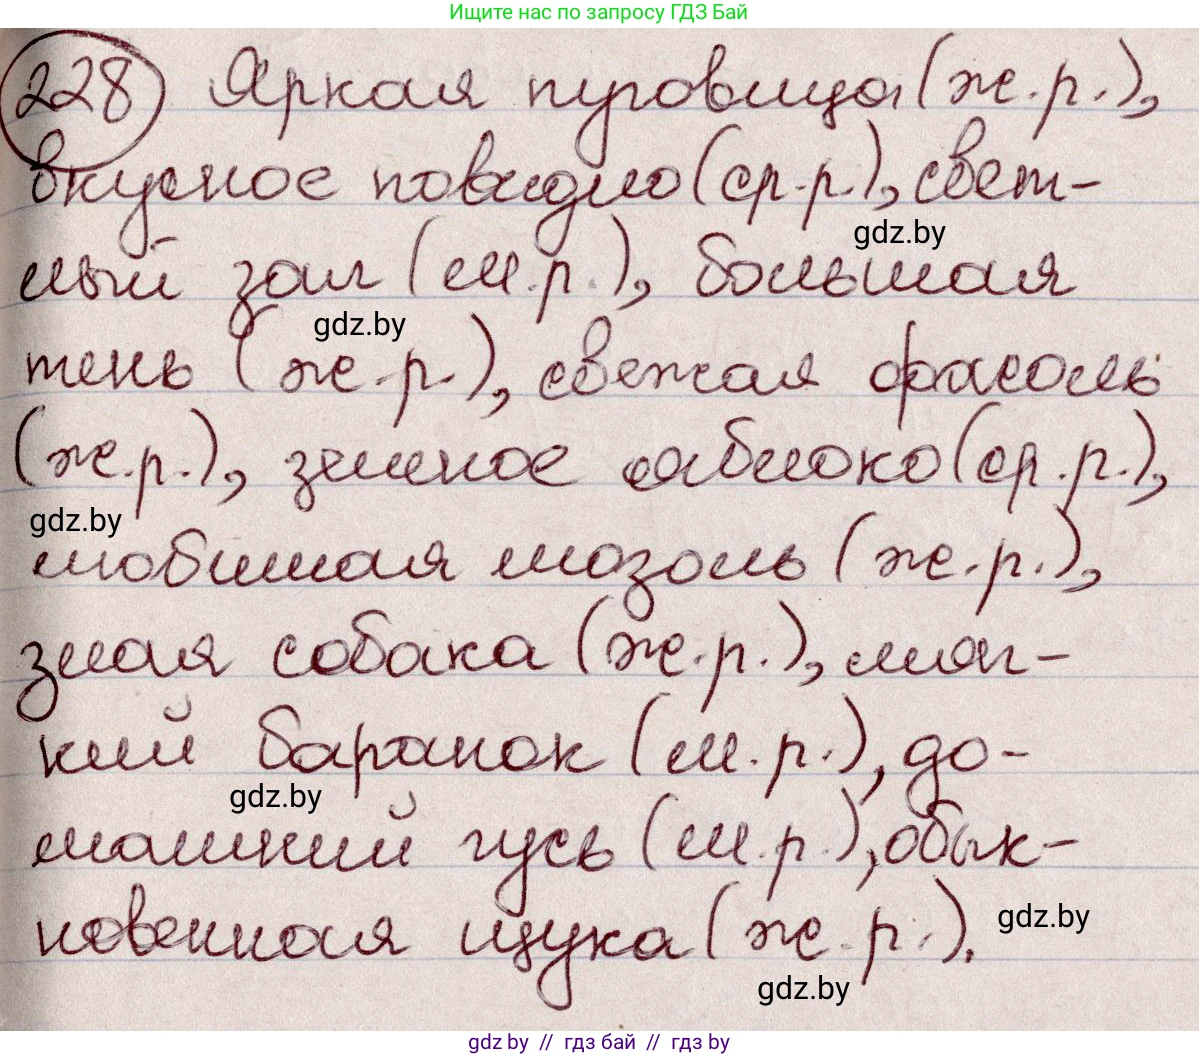 Ищите нас по запросу ГДЗ Бай
228 Яркая пуговица (ж.р.),
вкусное повидло (ср.р.), свет-
gdz.by
лый зал (м.р.), большая
gdz.by
тень (ж.р.), свежая фасоль
(ж.р.), зимнее яблоко (ср.р.),
gdz.by
любимая мозоль (ж.р.),
злая собака (ж.р.), мяг-
кий баранок (м.р.), до-
gdz.by
машний гусь (м.р.), обык-
новенная щука (ж.р.).
gdz.by
gdz.by
gdz.by // гдз бай // гдз by